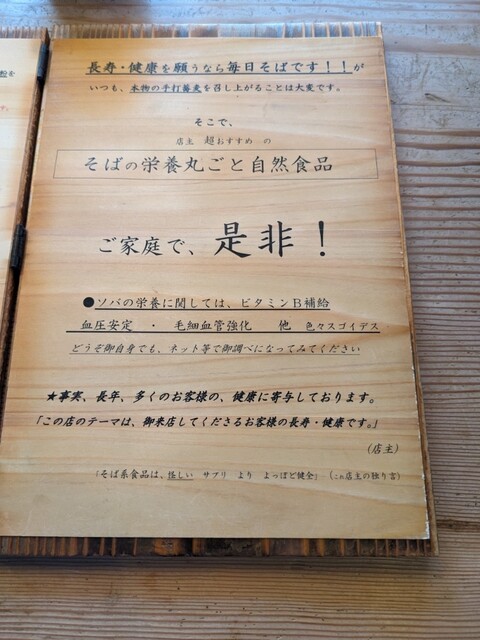 長寿・健康を願うなら毎日そばです！！が
いつも、本物の手打蕎麦を召し上がることは大変です。
そこで、
店主 超おすすめ の
そばの栄養丸ごと自然食品
ご家庭で、是非！
●ソバの栄養に関しては、ビタミンＢ補給
血圧安定 ・ 毛細血管強化 他 色々スゴイデス
どうぞ御自身でも、ネット等で御調べになってみてください
★事実、長年、多くのお客様の、健康に寄与しております。
「この店のテーマは、御来店してくださるお客様の長寿・健康です。」
（店主）
「そば系食品は、怪しい サプリ より よっぽど健全」 （これ店主の独り言）